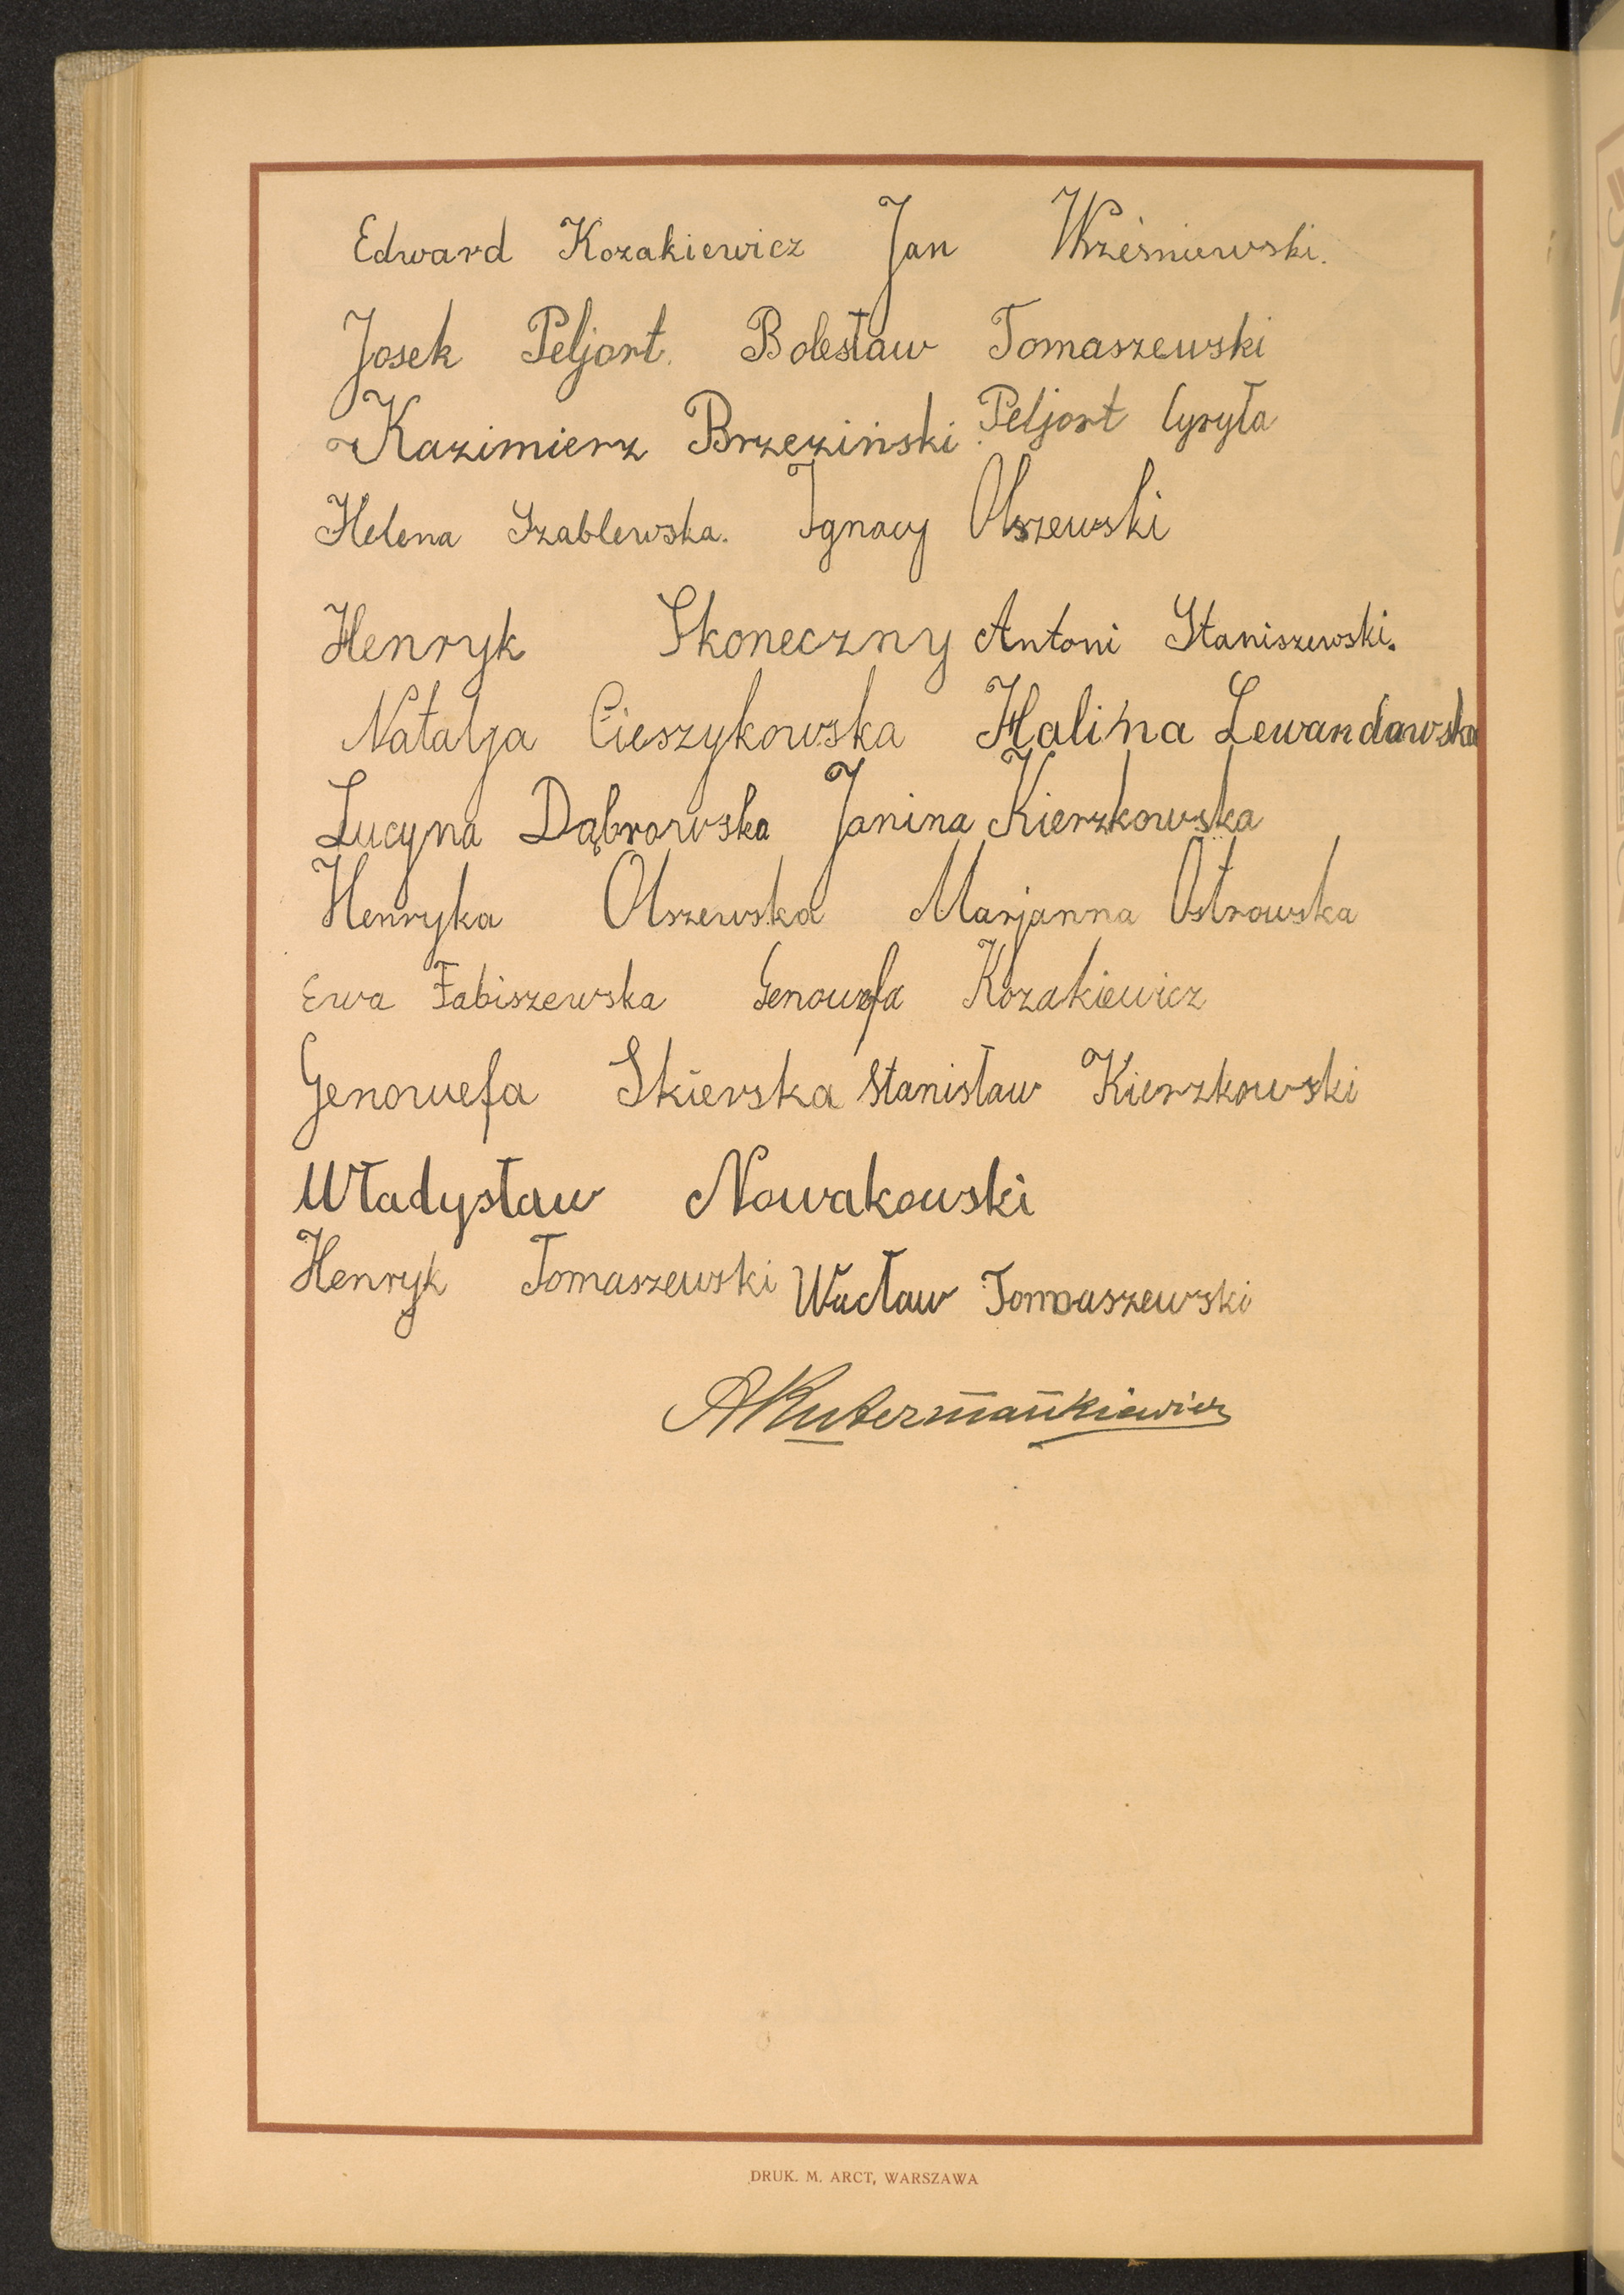 Edward Kozakiewicz Jan Wrześniewski.
Josek Peljart. Bolesław Tomaszewski
Kazimierz Brzeziński Peljart Cyryła
Helena Szablewska. Ignacy Olszewski
Henryk Skoneczny Antoni Staniszewski.
Natalja Cieszykowska Halina Lewandowska
Lucyna Dąbrowska Janina Kierzkowska
Henryka Olszewska Marjanna Ostrowska
Ewa Fabiszewska Genowefa Kozakiewicz
Genowefa Skierska Stanisław Kierzkowski
Władysław Nowakowski
Henryk Tomaszewski Wacław Tomaszewski
DRUK. M. ARCT, WARSZAWA